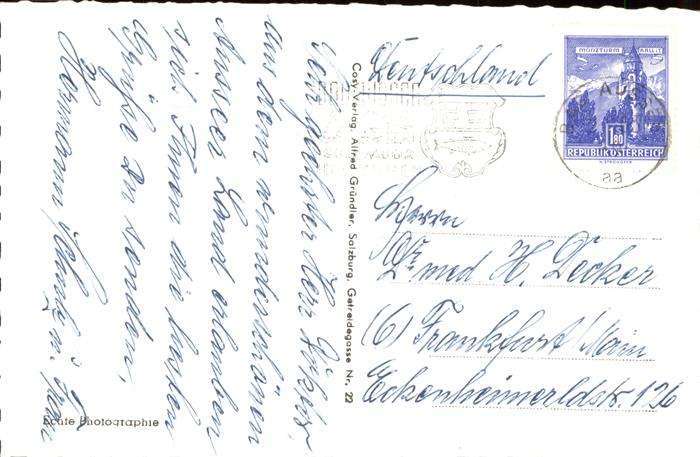 Sehr geehrter Herr Doktor!
Aus dem wunderschönen
Ausseer Land erlauben
sich Ihnen die besten
Grüße zu senden,
Hermann u. Frau
Echte Photographie
Cosy-Verlag, Alfred Gründler, Salzburg, Getreidegasse Nr. 22
Deutschland
MÜNZTURM HALL i.T.
1.80
REPUBLIK ÖSTERREICH
Herrn
Dr. med H. Decker
(6) Frankfurt Main
Eckenheimerldstr. 126